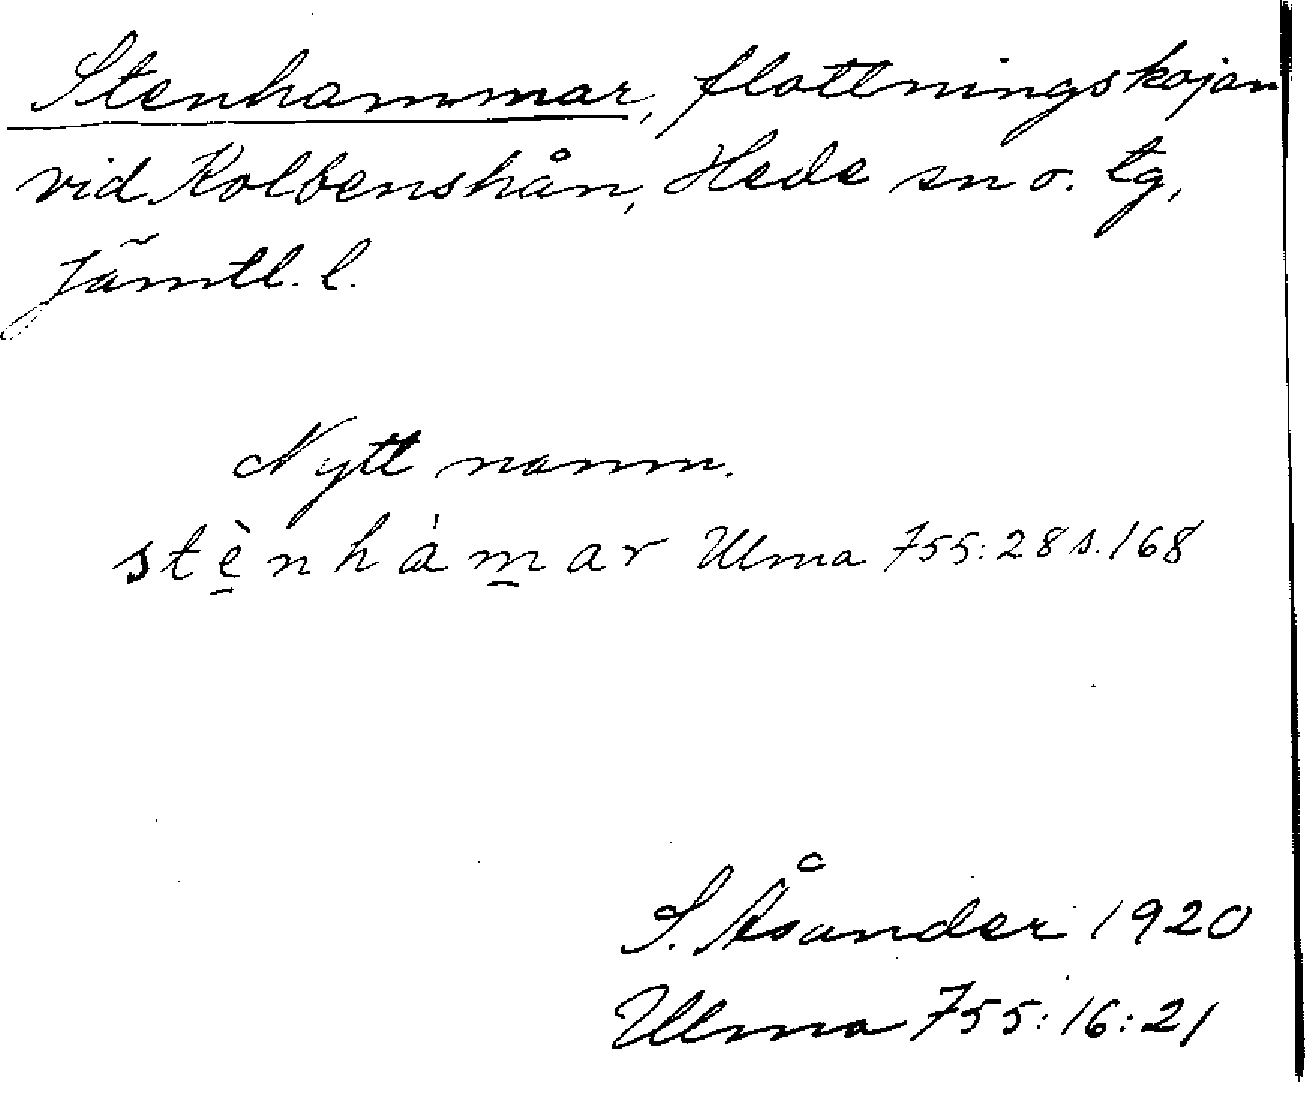 Stenhammar, flottningskojan
vid Kolbenshån, Hede sn o. tg,
Jämtl. l.
Nytt namn.
stè̱nhàm̱ar Ulma 755:28 s.168
S. Åsander 1920
Ulma 755:16:21